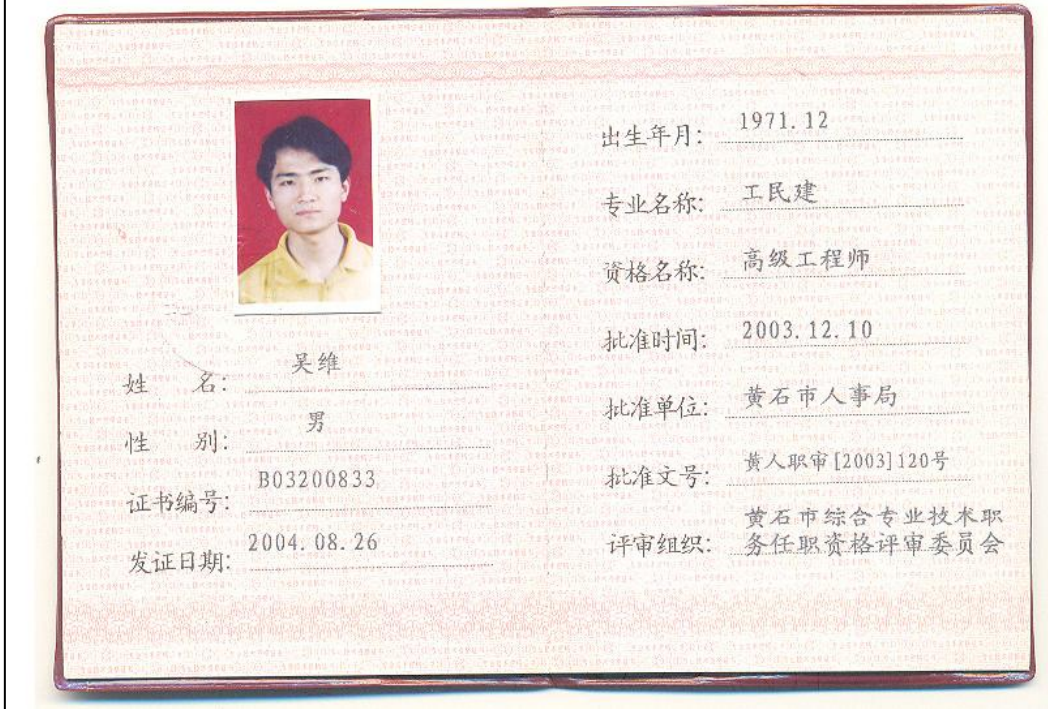 姓 名: 吴维
性 别: 男
证书编号: B03200833
发证日期: 2004.08.26
出生年月: 1971.12
专业名称: 工民建
资格名称: 高级工程师
批准时间: 2003.12.10
批准单位: 黄石市人事局
批准文号: 黄人职审[2003]120号
评审组织: 黄石市综合专业技术职
务任职资格评审委员会